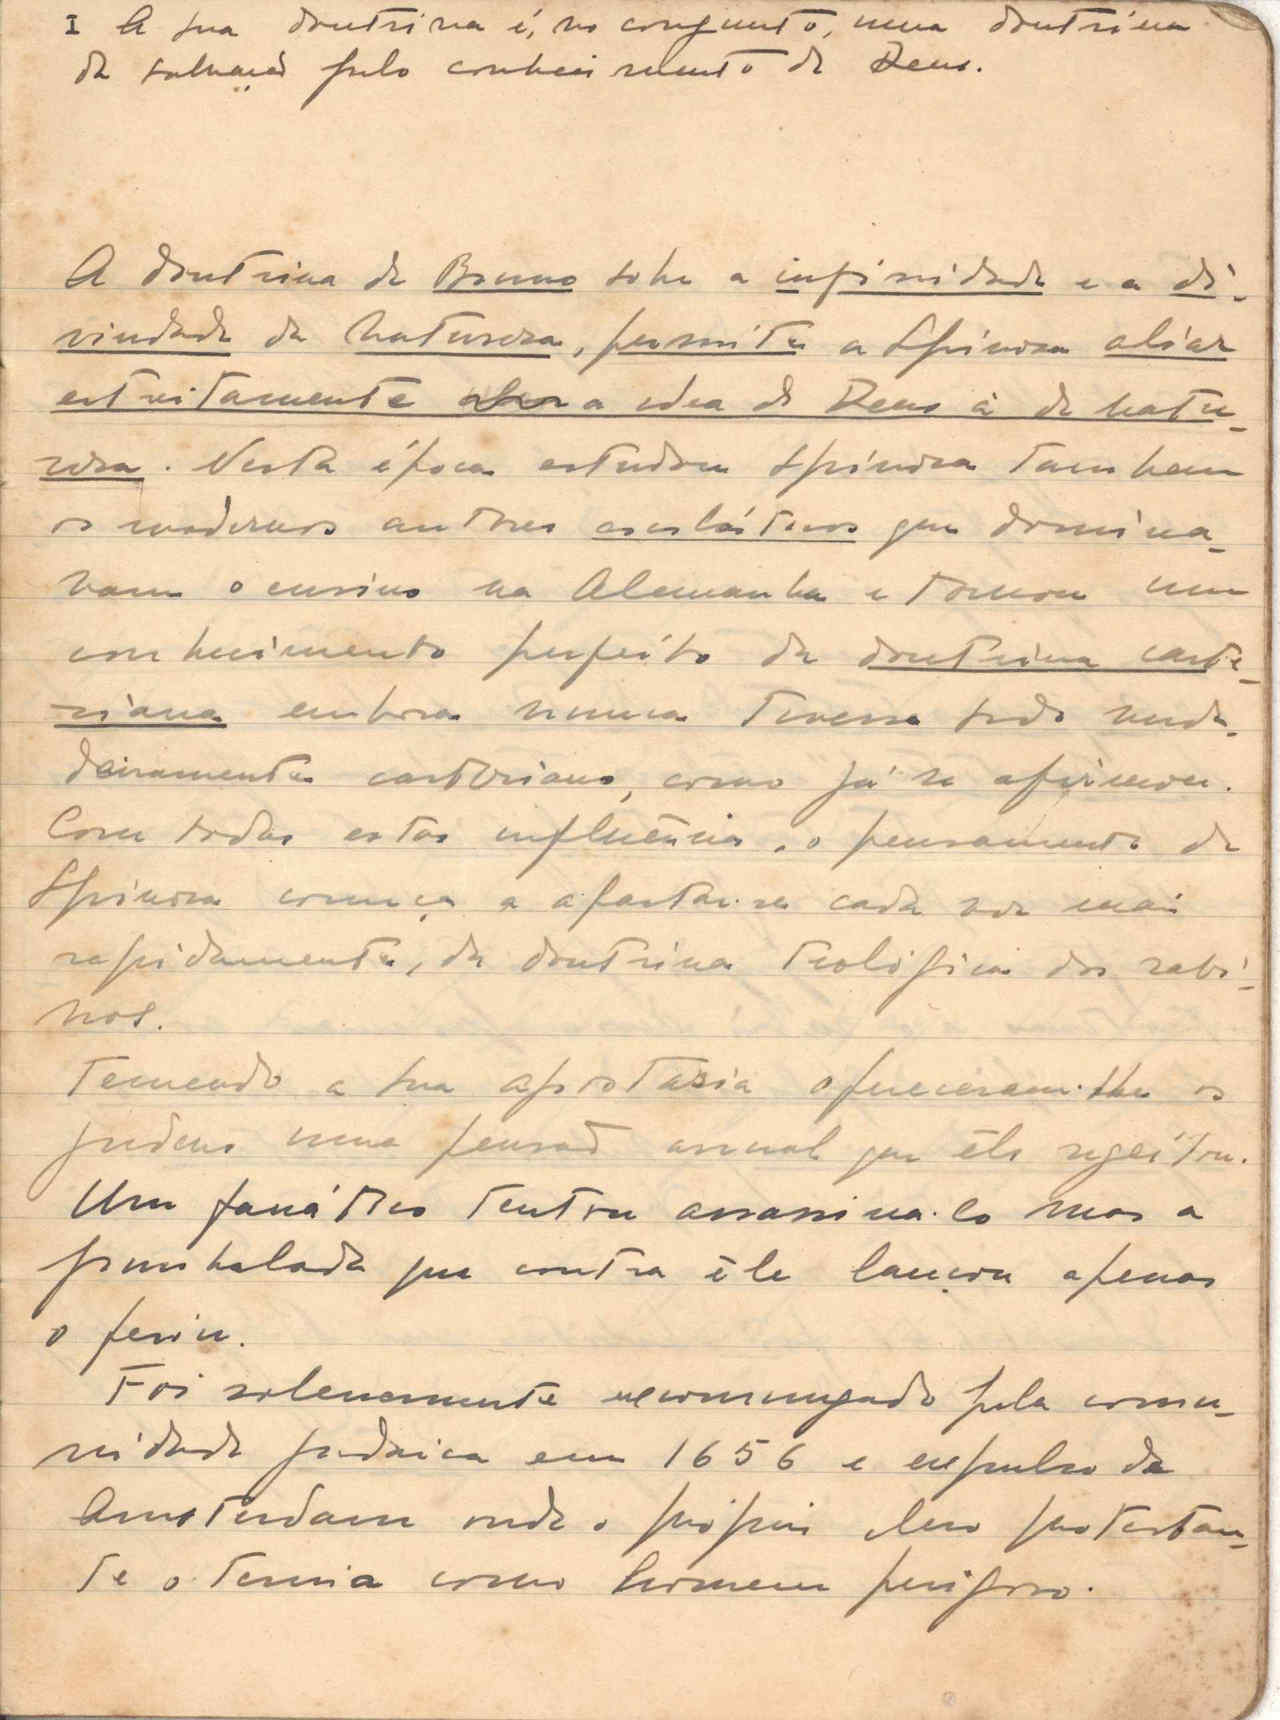 I A sua doutrina é, no conjunto, uma doutrina
da salvação pelo conhecimento de Deus.
A doutrina de Bruno sobre a infinidade e a di-
vindade da natureza, permite a Spinoza aliar
estreitamente a idea de Deus à de natu-
reza. Nesta época estudou Spinoza tambem
os modernos autores escolásticos que domina-
vam o ensino na Alemanha e tomou um
conhecimento perfeito da doutrina carte-
siana embora nunca tivesse sido verda-
deiramente cartesiano, como já se afirmou.
Com todas estas influências, o pensamento de
Spinoza começa a afastar-se cada vez mais
rapidamente, da doutrina teológica dos rabi-
nos.
Temendo a sua apostasia ofereceram-lhe os
judeus uma pensão anual que êle regeitou.
Um fanático tentou assassina-lo mas a
punhalada que contra êle lançou apenas
o feriu.
Foi solenemente excomungado pela comu-
nidade judaica em 1656 e expulso de
Amsterdam onde o próprio clero protestan-
te o temia como homem perigoso.